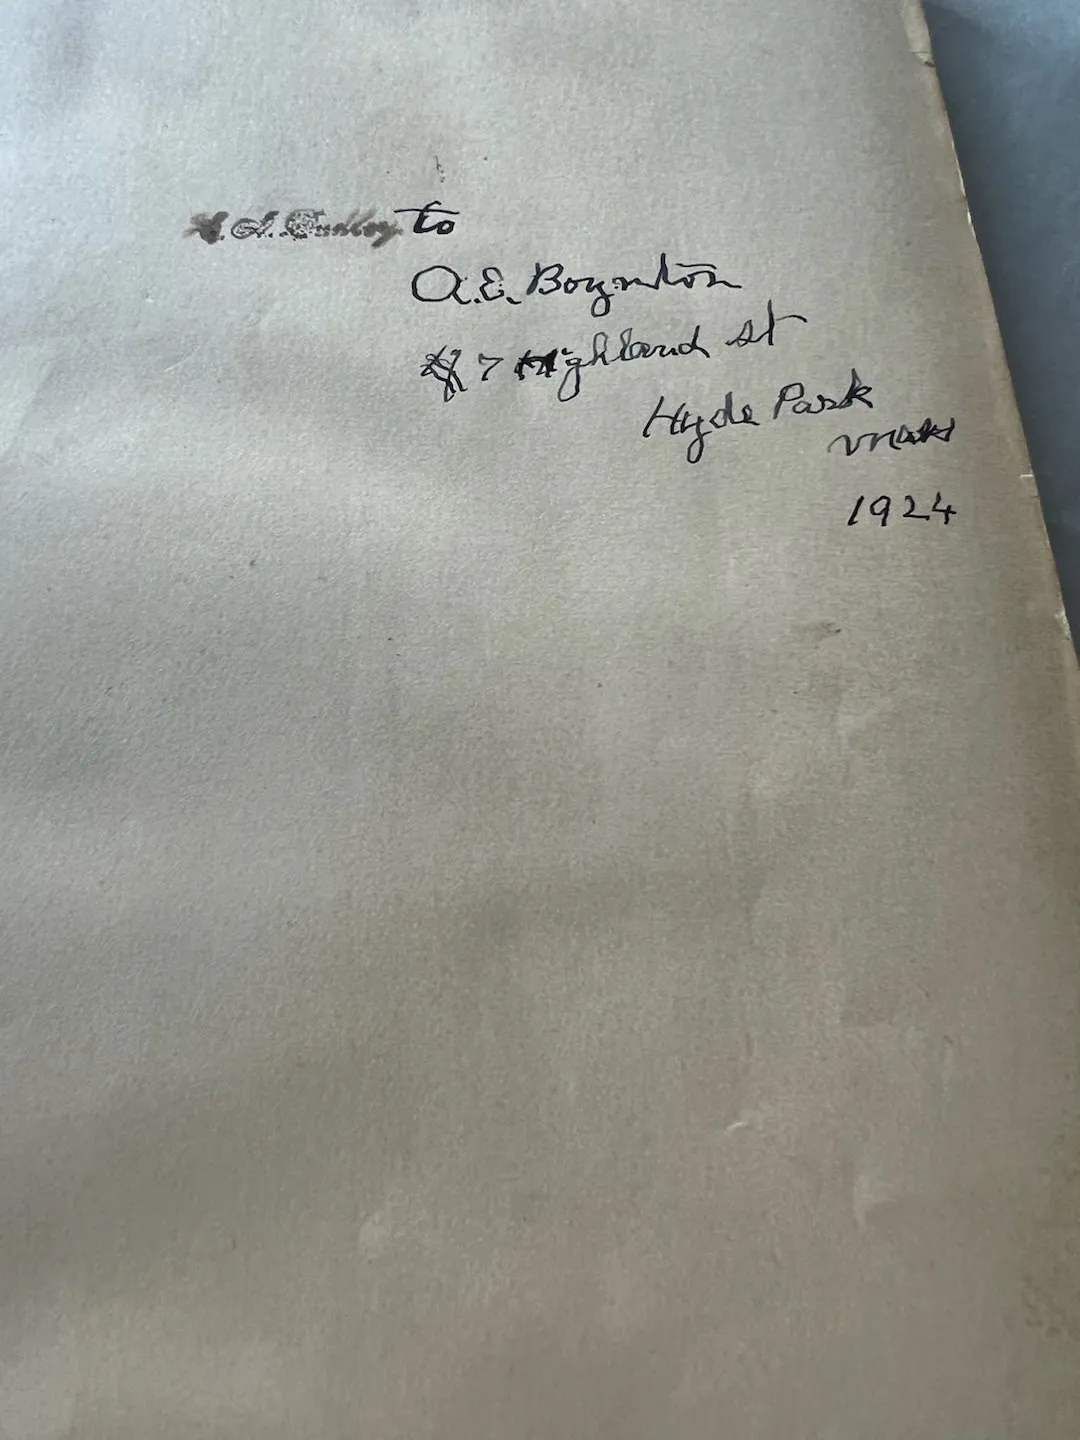 to
A. E. Boynton
7 Highland st
Hyde Park
Mass
1924